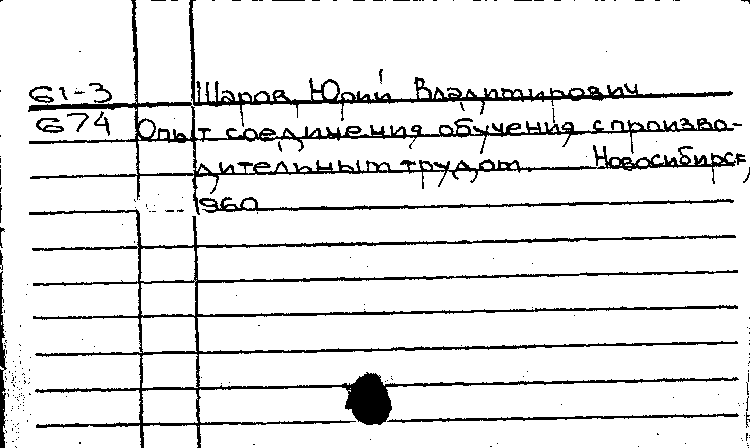 61-3 Шаров, Юрий Владимирович
674 Опыт соединения обучения с произво-
дительным трудом. Новосибирск,
1960